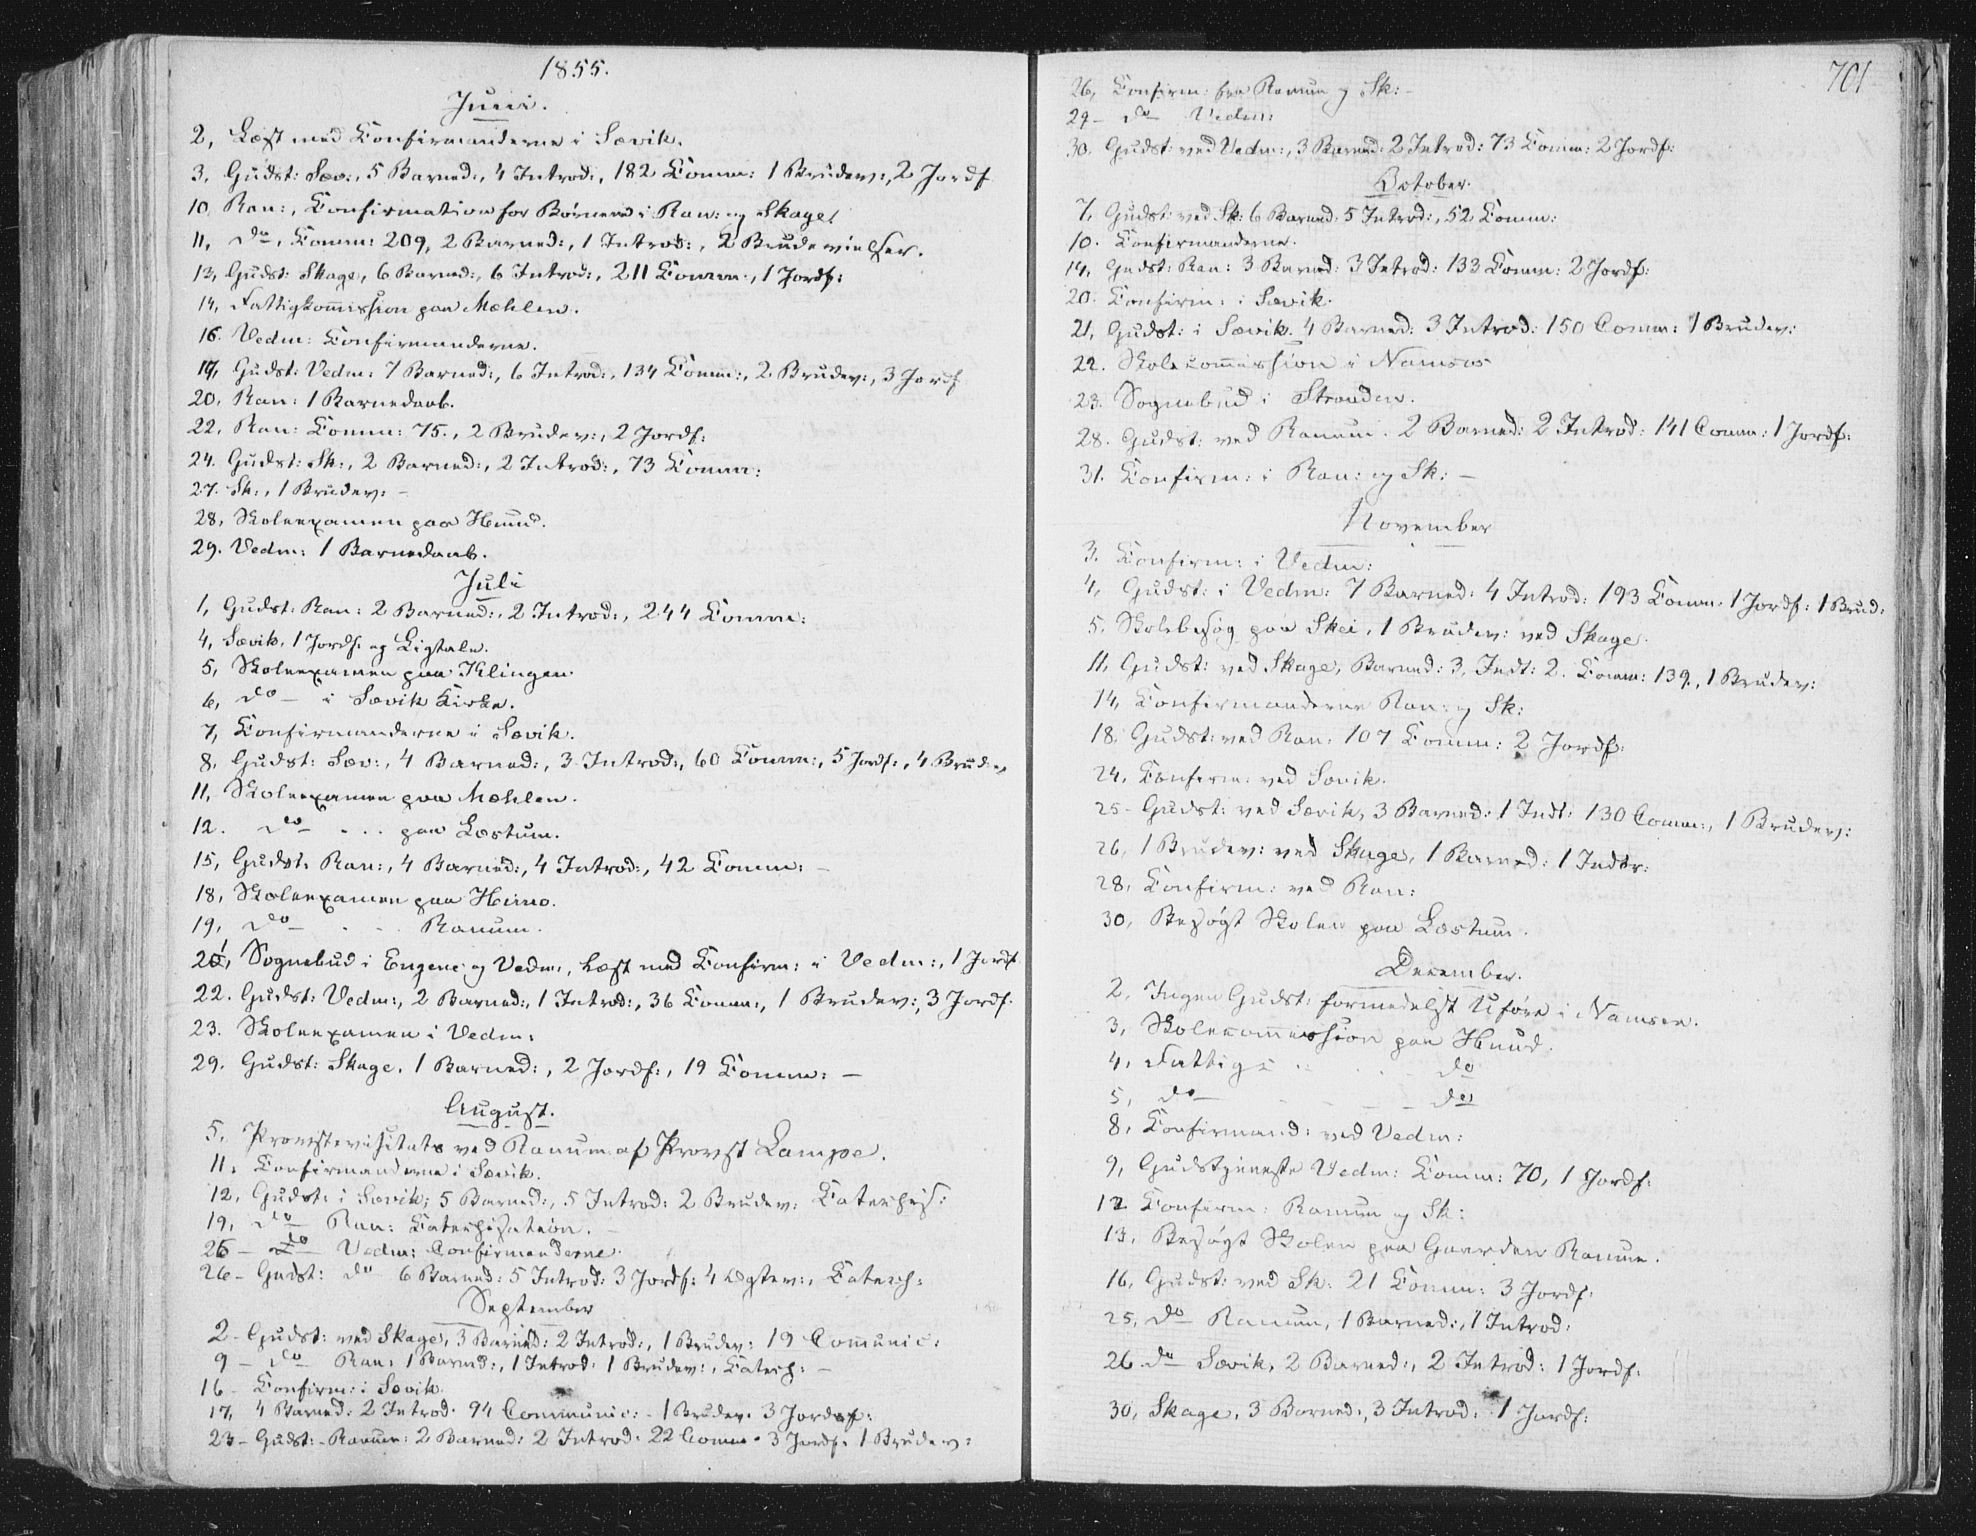 1855.
Juni.
2, Læst med Konfirmanderne i Sævik.
3, Gudst: Sæv:, 5 Barned:, 4 Introd:, 182 Comm: 1 Brudev:, 2 Jordf
10. Ran:, Konfirmation for Børnene i Ran: og Skage,
11, do, Komm: 209, 2 Barned:, 1 Introd:, 2 Brudevielser.
13, Gudst: Skage, 6 Barned:, 6 Introd:, 211 Comm:, 1 Jordf:
14, Fattigkommission paa Mæhlen.
16. Vedm: Confirmanderne.
17, Gudst: Vedm: 7 Barned:, 6 Introd:, 134 Comm:, 2 Brudev:, 3 Jordf
20. Ran: 1 Barnedaab.
22. Ran: Comm: 75., 2 Brudev:, 2 Jordf:
24. Gudst: Sk:, 2 Barned:, 2 Introd:, 73 Comm:
27. Sk:, 1 Brudev: –
28, Skoleexamen paa Hunn.
29. Vedm: 1 Barnedaab.
Juli
1, Gudst: Ran: 2 Barned:, 2 Introd:, 244 Comm:
4, Sævik, 1 Jordf: og Ligtale.
5, Skoleexamen paa Klingen.
6, do – i Sævik Kirke.
7, Confirmanderne i Sævik.
8, Gudst: Sæv:, 4 Barned:, 3 Introd:, 60 Comm:, 5 Jordf:, 4 Brudev
11, Skoleexamen paa Mæhlen.
12. do – . . . paa Løstum.
15, Gudst: Ran:, 4 Barned:, 4 Introd:, 42 Comm: –
18, Skoleexamen paa Heimo.
19, do – . . . Ranum.
21, Sognebud i Vedm:, Læst med Confirm: i Vedm:, 1 Jordf
22. Gudst: Vedm:, 2 Barned:, 1 Introd:, 36 Comm:, 1 Brudev:, 3 Jordf.
23. Skoleexamen i Vedm:
29. Gudst: Skage, 1 Barned:, 2 Jordf:, 19 Comm: –
August.
5. Provstevisitats ved Ranum af Provst Lampe.
11. Confirmanderne i Sævik.
12, Gudst: i Sævik; 5 Barned:, 5 Introd: 2 Brudev: Catechis:
19, do – Ran: Katechisation. –
25 – do – Vedm: Confirmanderne.
26 – Gudst: do 6 Barned: 5 Introd: 3 Jordf: 4 Ægtev:, Catech:
September
2 – Gudst: ved Skage, 3 Barned: 2 Introd:, 1 Brudev: 19 Comunic:
9 – do – Ran: 1 Barned:, 1 Introd: 1 Brudev:, Catech: –
16 – Confirm: i Sævik.
17, 4 Barned: 2 Introd. 94 Communic: – 1 Brudev. 3 Jordf:
23 – Gudst: – Ranum: 2 Barned: 2 Introd. 22 Comm. 3 Jordf. 1 Brudev:
701
26, Confirm: fra Ranum og Sk: –
29 – do – Vedm:
30. Gudst: ved Vedm:, 3 Barned: 2 Introd: 73 Comm: 2 Jordf:
October.
7, Gudst: ved Sk: 6 Barned: 5 Introd:, 52 Comm:
10. Confirmanderne.
14, Gudst: Ran: 3 Barned: 3 Introd: 133 Comm: 2 Jordf:
20. Confirm: i Sævik.
21, Gudst: i Sævik. 4 Barned: 3 Introd: 150 Comm: 1 Brudev:
22. Skolecommission i Namsos
23. Sognebud i Stranden.
28. Gudst: ved Ranum. 2 Barned: 2 Introd: 141 Comm: 1 Jordf:
31. Confirm: i Ran: og Sk: –
November
3. Confirm: i Vedm:
4, Gudst: i Vedm: 7 Barned: 4 Introd: 193 Comm. 1 Jordf: 1 Brud:
5. Skolebesøg paa Skei, 1 Brudev: ved Skage.
11, Gudst: ved Skage, Barned: 3, Indt: 2. Comm: 139., 1 Brudev:
14, Confirmanderne Ran: og Sk:
18. Gudst: ved Ran. 107 Comm: 2 Jordf:
24, Confirm: ved Sævik.
25 – Gudst: ved Sævik, 3 Barned: 1 Indt: 130 Comm:, 1 Brudev:
26, 1 Brudev: ved Skage, 1 Barned: 1 Indtr:
28, Confirm: ved Ran:
30, Besøgt Skolen paa Løstum.
December.
2, Ingen Gudst: formedelst Uføre i Namsen.
3, Skolecommission paa Hunn.
4, Fattig: . . . do
5, do – – – – do
8, Confirmand: ved Vedm:
9, Gudstjeneste Vedm: Comm: 70, 1 Jordf:
12 Confirm: Ranum og Sk:
13, Besøgt Skolen paa Gaarden Ranum.
16, Gudst: ved Sk: 21 Comm: 3 Jordf:
25, do Ranum, 1 Barned:, 1 Introd:
26 do – Sævik, 2 Barned:, 2 Introd: 1 Jordf:
30, Skage, 3 Barned:, 3 Introd: 1 Jordf: